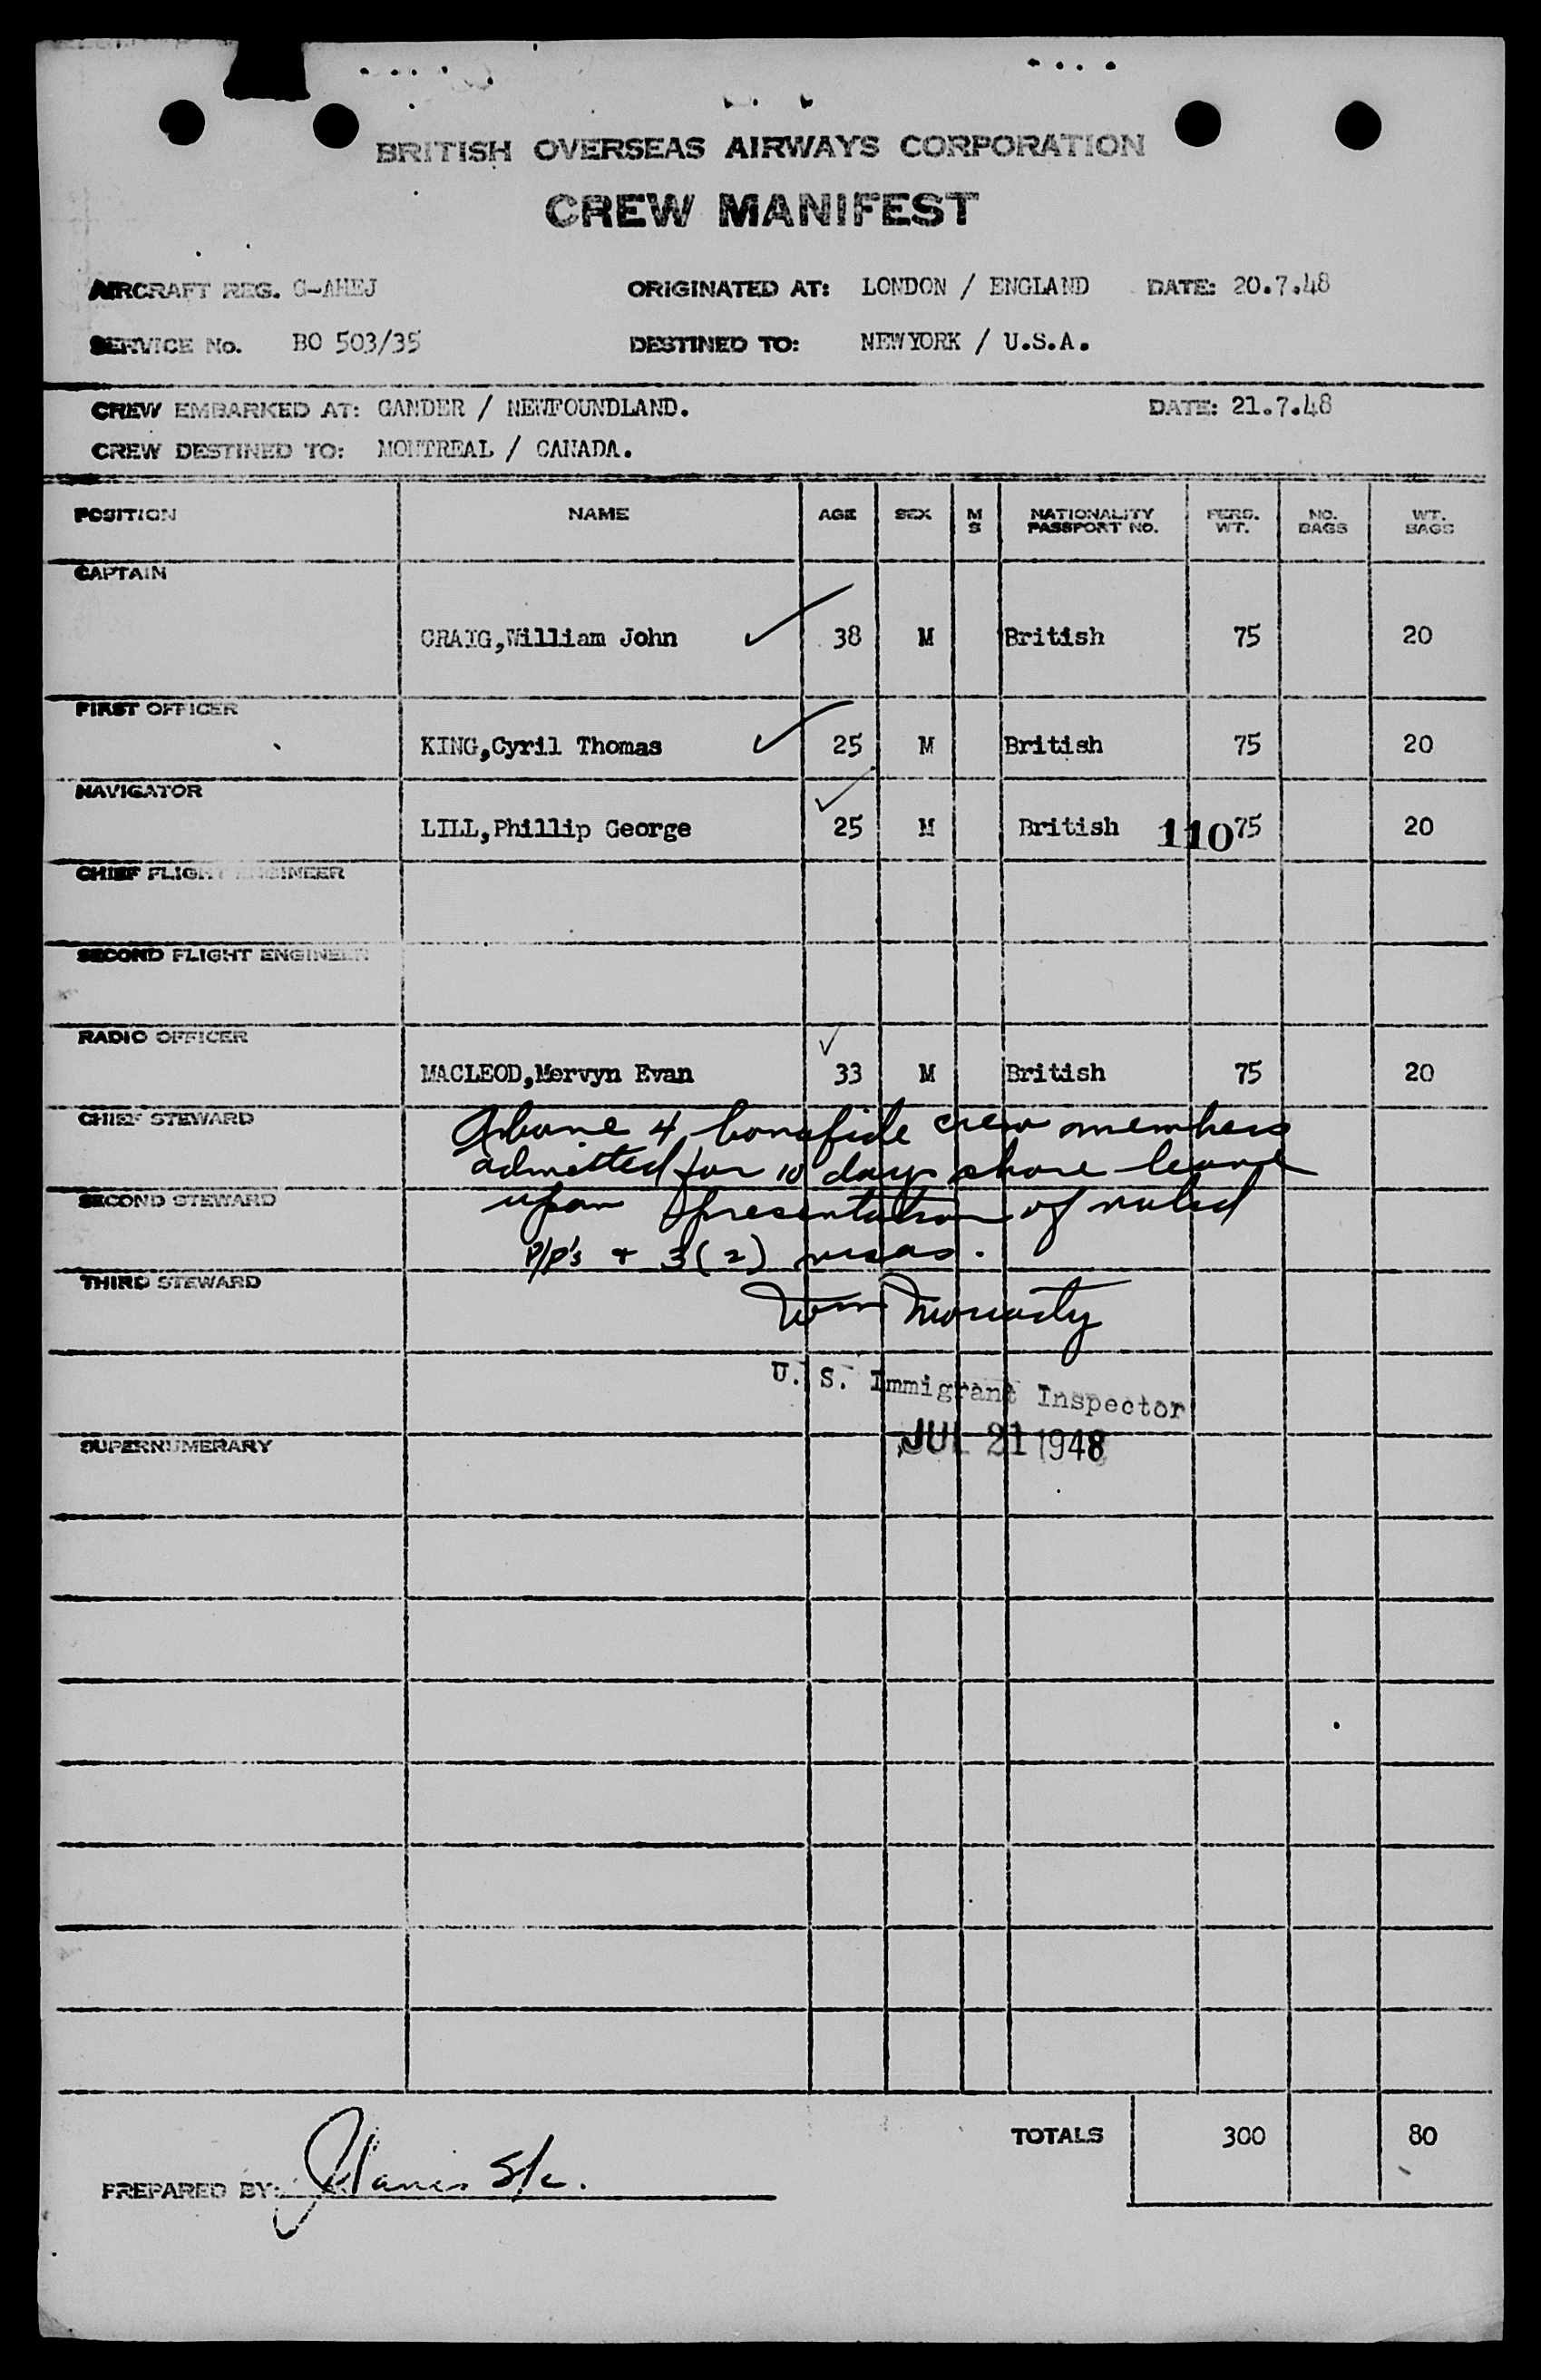 BRITISH OVERSEAS AIRWAYS CORPORATION
CREW MANIFEST
AIRCRAFT REG. G-AHEJ ORIGINATED AT: LONDON / ENGLAND DATE: 20.7.48
SERVICE No. BO 503/35 DESTINED TO: NEWYORK / U.S.A.
CREW EMBARKED AT: GANDER / NEWFOUNDLAND. DATE: 21.7.48
CREW DESTINED TO: MONTREAL / CANADA.
POSITION NAME AGE SEX M S NATIONALITY PASSPORT NO. PERS. WT. NO. BAGS WT. BAGS
CAPTAIN
CRAIG,William John 38 M British 75 20
FIRST OFFICER
KING,Cyril Thomas 25 M British 75 20
NAVIGATOR
LILL,Phillip George 25 M British 110 75 20
CHIEF FLIGHT ENGINEER
SECOND FLIGHT ENGINEER
RADIO OFFICER
MACLEOD,Mervyn Evan 33 M British 75 20
CHIEF STEWARD
Above 4 bonafide crew members
admitted for 10 days shore leave
SECOND STEWARD
upon presentation of valid
P/P's + 3(2) visas.
THIRD STEWARD
Wm Moriarty
U. S. Immigrant Inspector
JUL 21 1948
SUPERNUMERARY
TOTALS 300 80
PREPARED BY: